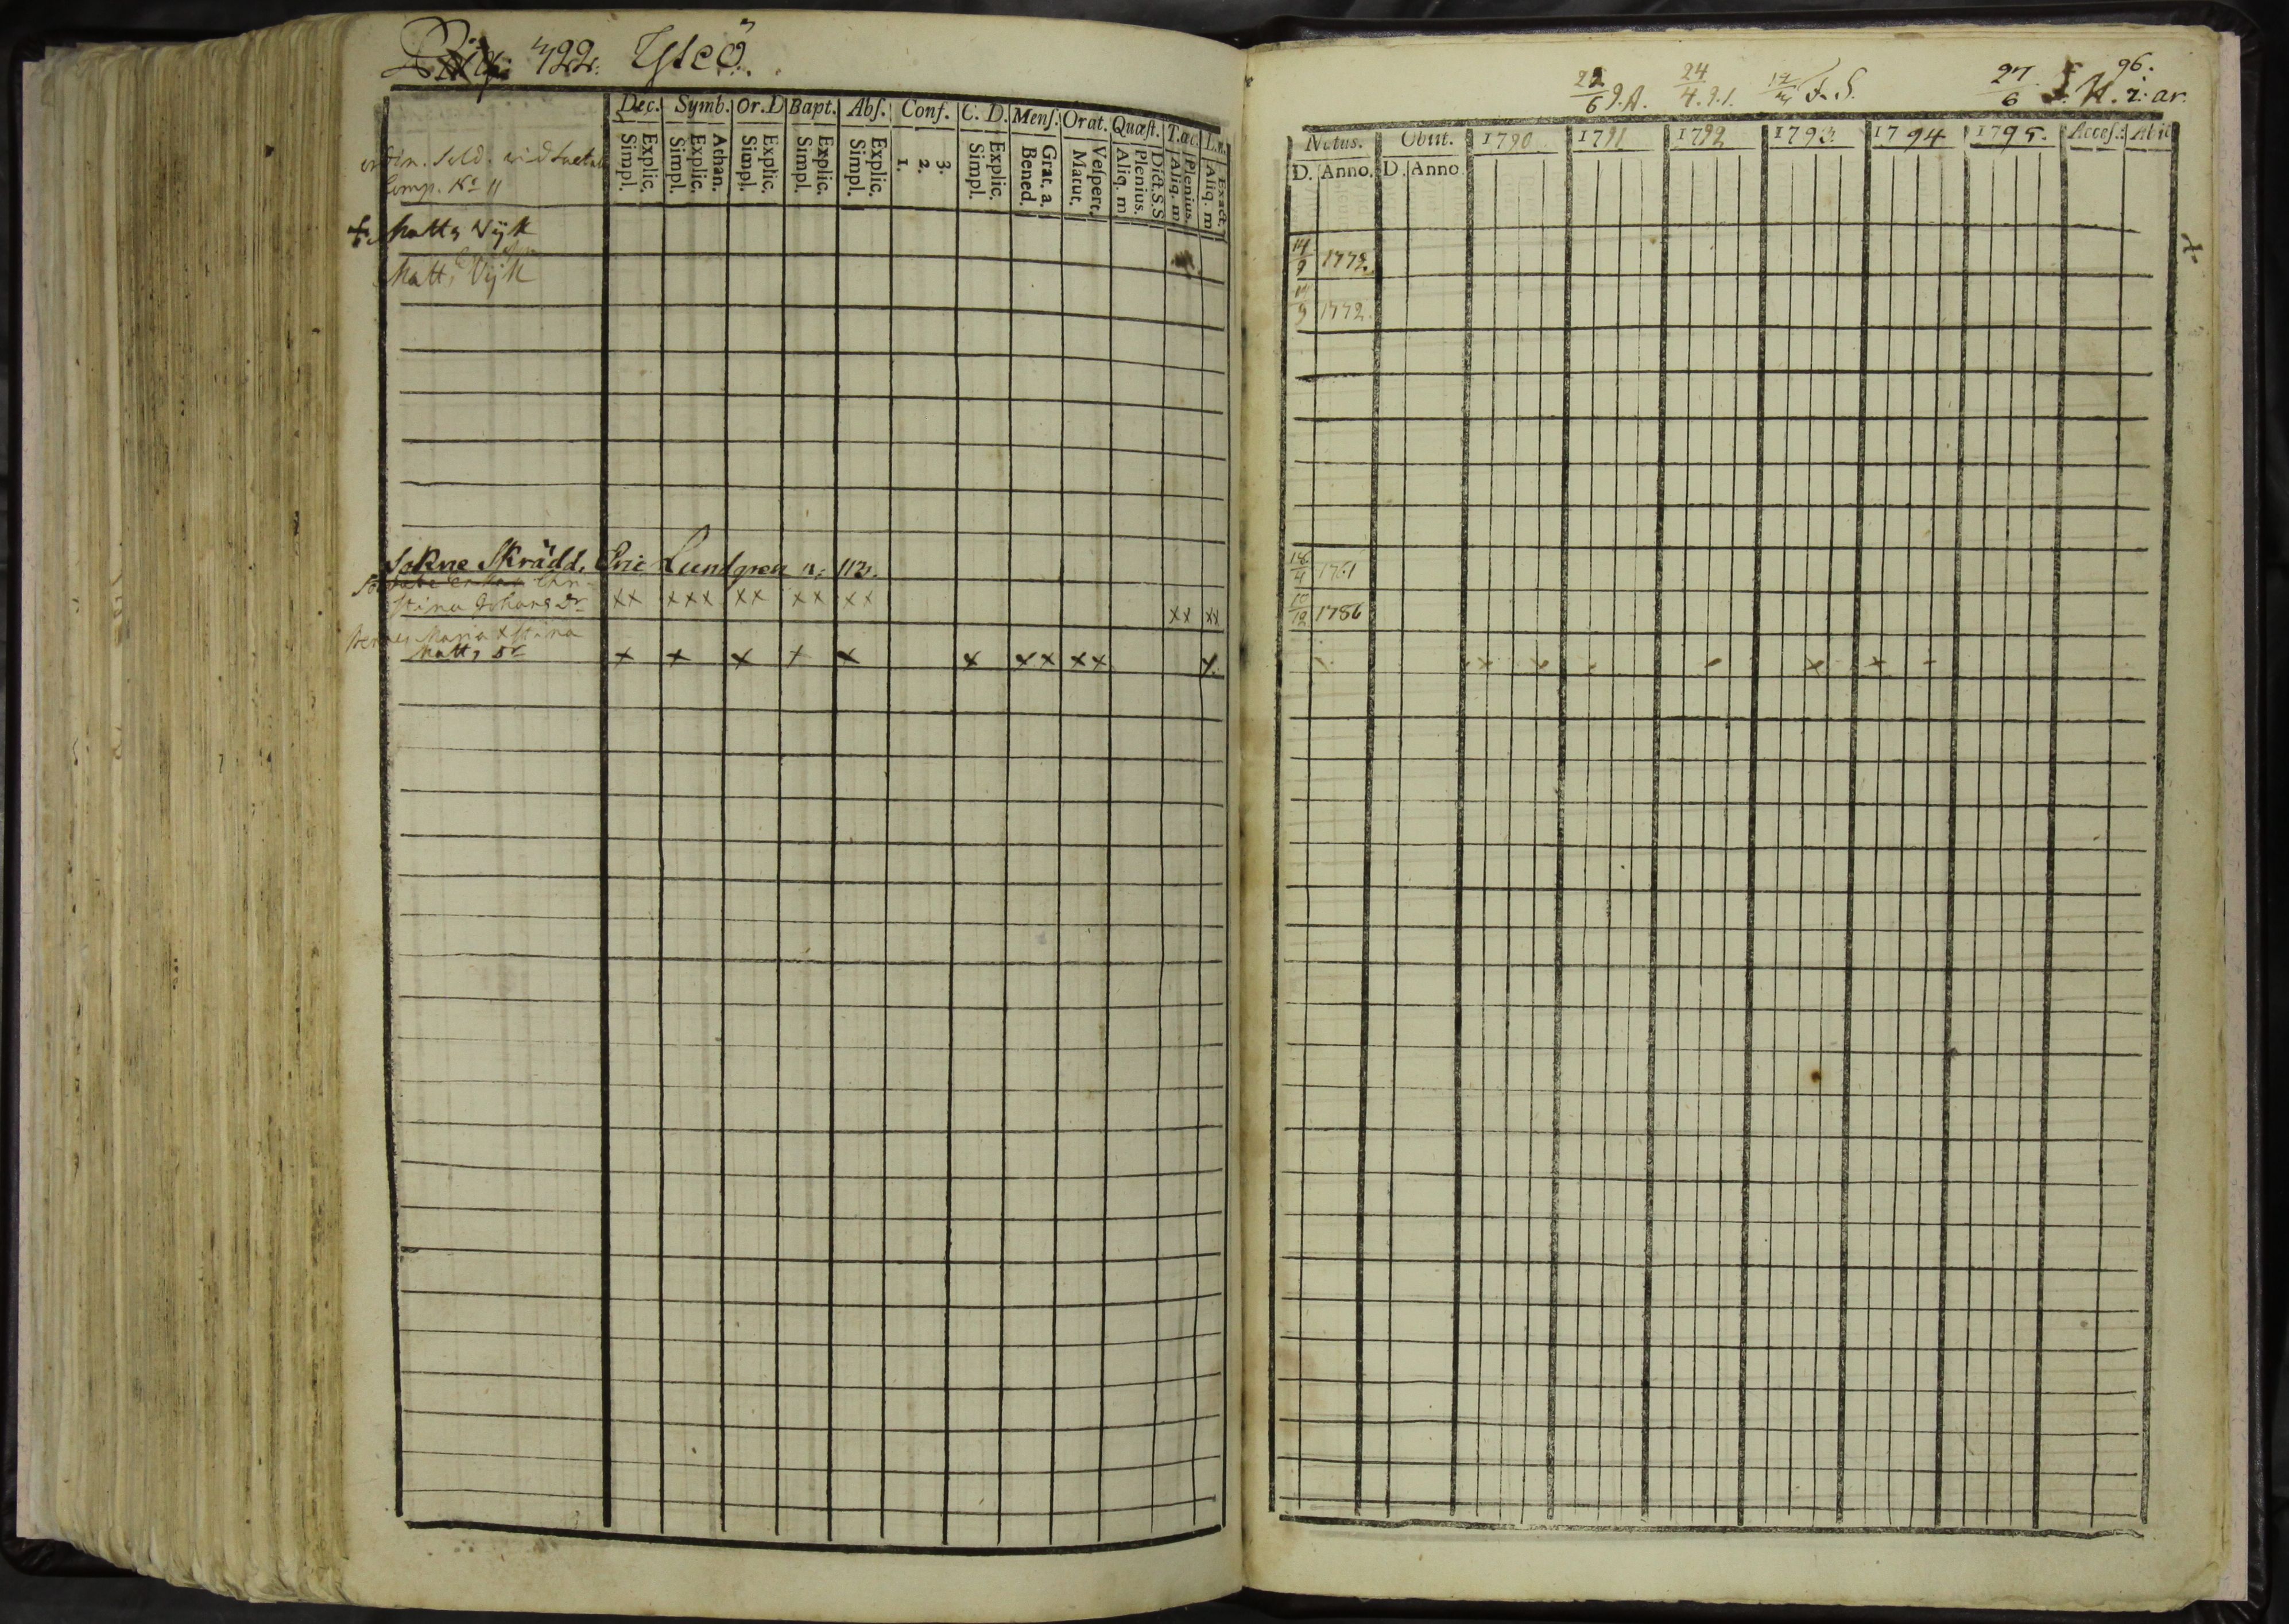 Pag: 422. Yseö
Dec. Symb. Or. D Bapt. Abs. Conf. C. D. Mens. Orat. Quæst. T.ac. L.
Explic. Simpl. Athan. Explic. Simpl. Explic. Simpl. Explic. Simpl. Explic. Simpl. 3. 2. 1. Explic. Simpl. Grat. a. Bened. Vespert. Matut. Dict. S. S Plenius. Aliq. m Plenius. Aliq. m Exact. Aliq. m
Comp. No 11
+ Matts Wijk
Matts Wijk
Sokne Skrädd. Eric Lundgren n: 113.
Stina Johans Dr xx xxx xx xx xx xx xx
Maria Stina
Matts Dr x x x x x x xx xx x
22/6 24/4 F. S. 27/6 96.
Natus. Obiit. 1790 1791 1792 1793 1794 1795. Acces. Abit
D. Anno. D. Anno
14/9 1772.
14/9 1772.
16/4 1761
10/12 1786